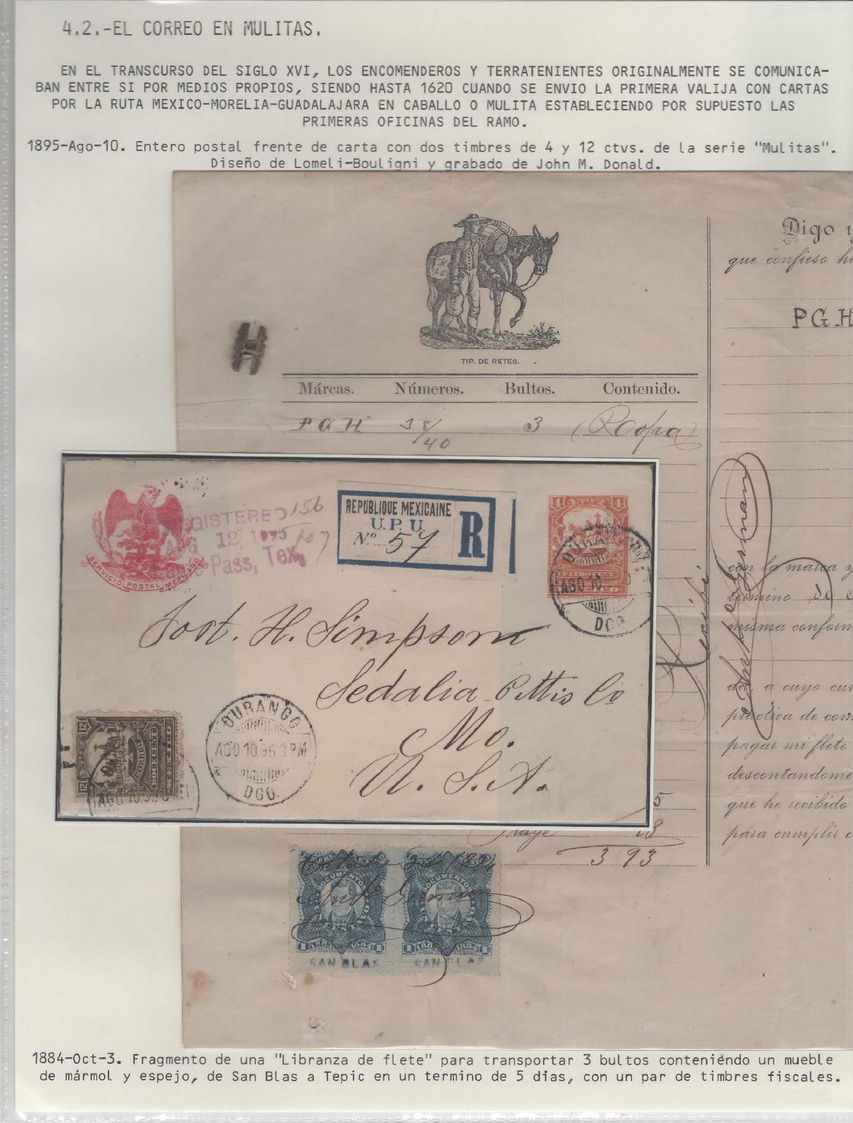 4.2.-EL CORREO EN MULITAS.
EN EL TRANSCURSO DEL SIGLO XVI, LOS ENCOMENDEROS Y TERRATENIENTES ORIGINALMENTE SE COMUNICA-
BAN ENTRE SI POR MEDIOS PROPIOS, SIENDO HASTA 1620 CUANDO SE ENVIO LA PRIMERA VALIJA CON CARTAS
POR LA RUTA MEXICO-MORELIA-GUADALAJARA EN CABALLO O MULITA ESTABLECIENDO POR SUPUESTO LAS
PRIMERAS OFICINAS DEL RAMO.
1895-Ago-10. Entero postal frente de carta con dos timbres de 4 y 12 ctvs. de la serie "Mulitas".
Diseño de Lomeli-Bouligni y grabado de John M. Donald.
TIP. DE RETES.
Márcas. Números. Bultos. Contenido.
PGH 38/40 3 (Ropa)
Digo y
que confieso h
PGH
con la marca y
término de
misma conform
da, a cuyo cum
práctica de com
pagar mi flete
descontandome
que he recibido
para cumplir
Recibí
SERVICIO POSTAL MEXICANO
GISTERED
12 1895
Pass, Tex.
156
107
REPUBLIQUE MEXICAINE
U.P.U.
Nº 57
R
4
AGO 10
DGO.
Post. H. Simpson
Sedalia Pettis Co
Mo.
U.S.A.
12
DURANGO
AGO 10 95 3 PM
DGO.
AGO 10
5
18
3 93
DOCUMENTOS
DOCUMENTOS
SAN BLAS
SAN BLAS
1884-Oct-3. Fragmento de una "Libranza de flete" para transportar 3 bultos conteniéndo un mueble
de mármol y espejo, de San Blas a Tepic en un termino de 5 dias, con un par de timbres fiscales.